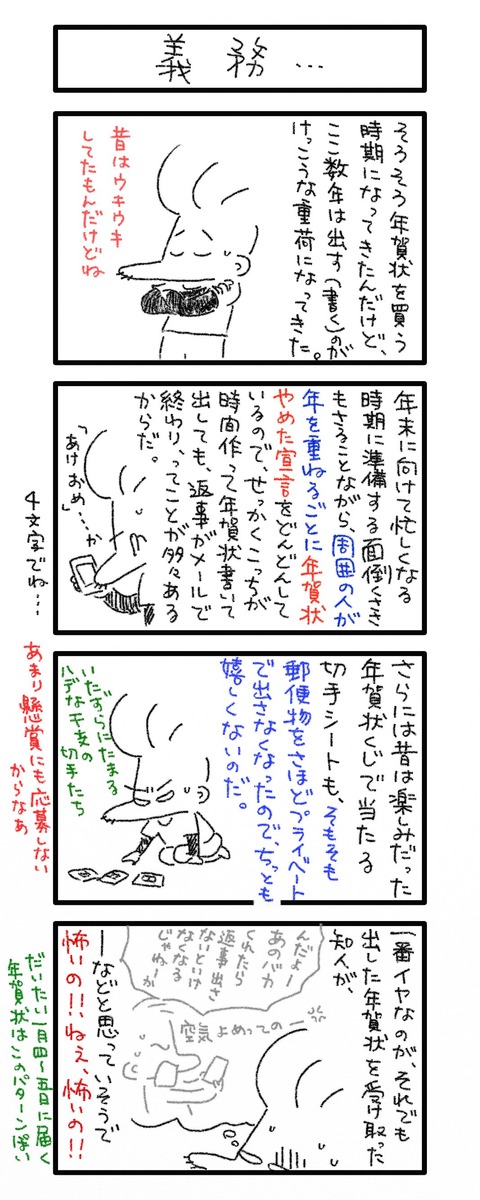 義務…
そろそろ年賀状を買う
時期になってきたんだけど、
ここ数年は出す(書く)のが
けっこうな重荷になってきた。
昔はウキウキ
してたもんだけどね
年末に向けて忙しくなる
時期に準備する面倒くささ
もさることながら、周囲の人が
年を重ねるごとに年賀状
やめた宣言をどんどんして
いるので、せっかくこっちが
時間作って年賀状書いて
出しても、返事がメールで
終わり、ってことが多々ある
からだ。
「あけおめ」…か
4文字でね…
さらには昔は楽しみだった
年賀状くじで当たる
切手シートも、そもそも
郵便物をさほどプライベート
で出さなくなったので、ちっとも
嬉しくないのだ。
いたずらにたまる
ハデな干支の
切手たち
あまり懸賞にも応募しない
からなあ
一番イヤなのが、それでも
出した年賀状を受け取った
知人が、
んだよー
あのバカ
くれたら
返事出さ
ないといけ
なくなる
じゃねーか
空気よめってのー
ーなどと思っていそうで
怖いの!!ねえ、怖いの!!
だいたい一月四〜五日に届く
年賀状はこのパターンぽい